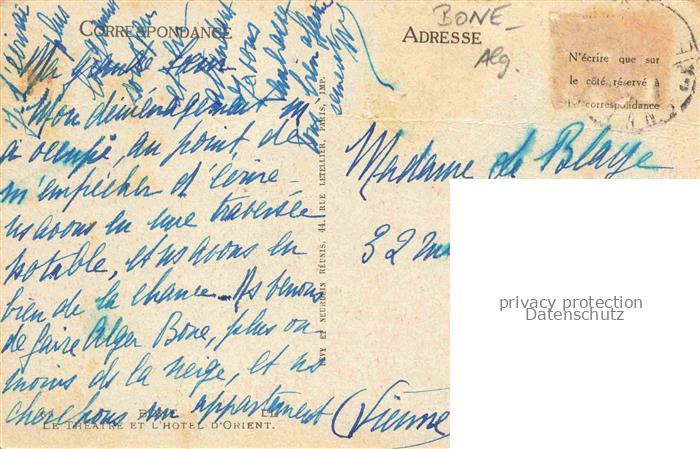 CORRESPONDANCE
ADRESSE
BONE -
Alg.
N'écrire que sur
le côté réservé à
la correspondance
Ma grande sœur
Mon déménagement m'
a occupé, au point de
m'empêcher d'écrire -
ns avons eu une traversée
potable, et ns avons eu
bien de la chance. Ns venons
de faire Alger Bone, plus ou
moins ds la neige, et ns
cherchons un appartement
LEVY ET NEURDEIN RÉUNIS, 44, RUE LETELLIER, PARIS, IMP.
Madame de Blaye
32
(Vienne
BONE
LE THÉATRE ET L'HOTEL D'ORIENT.
privacy protection
Datenschutz